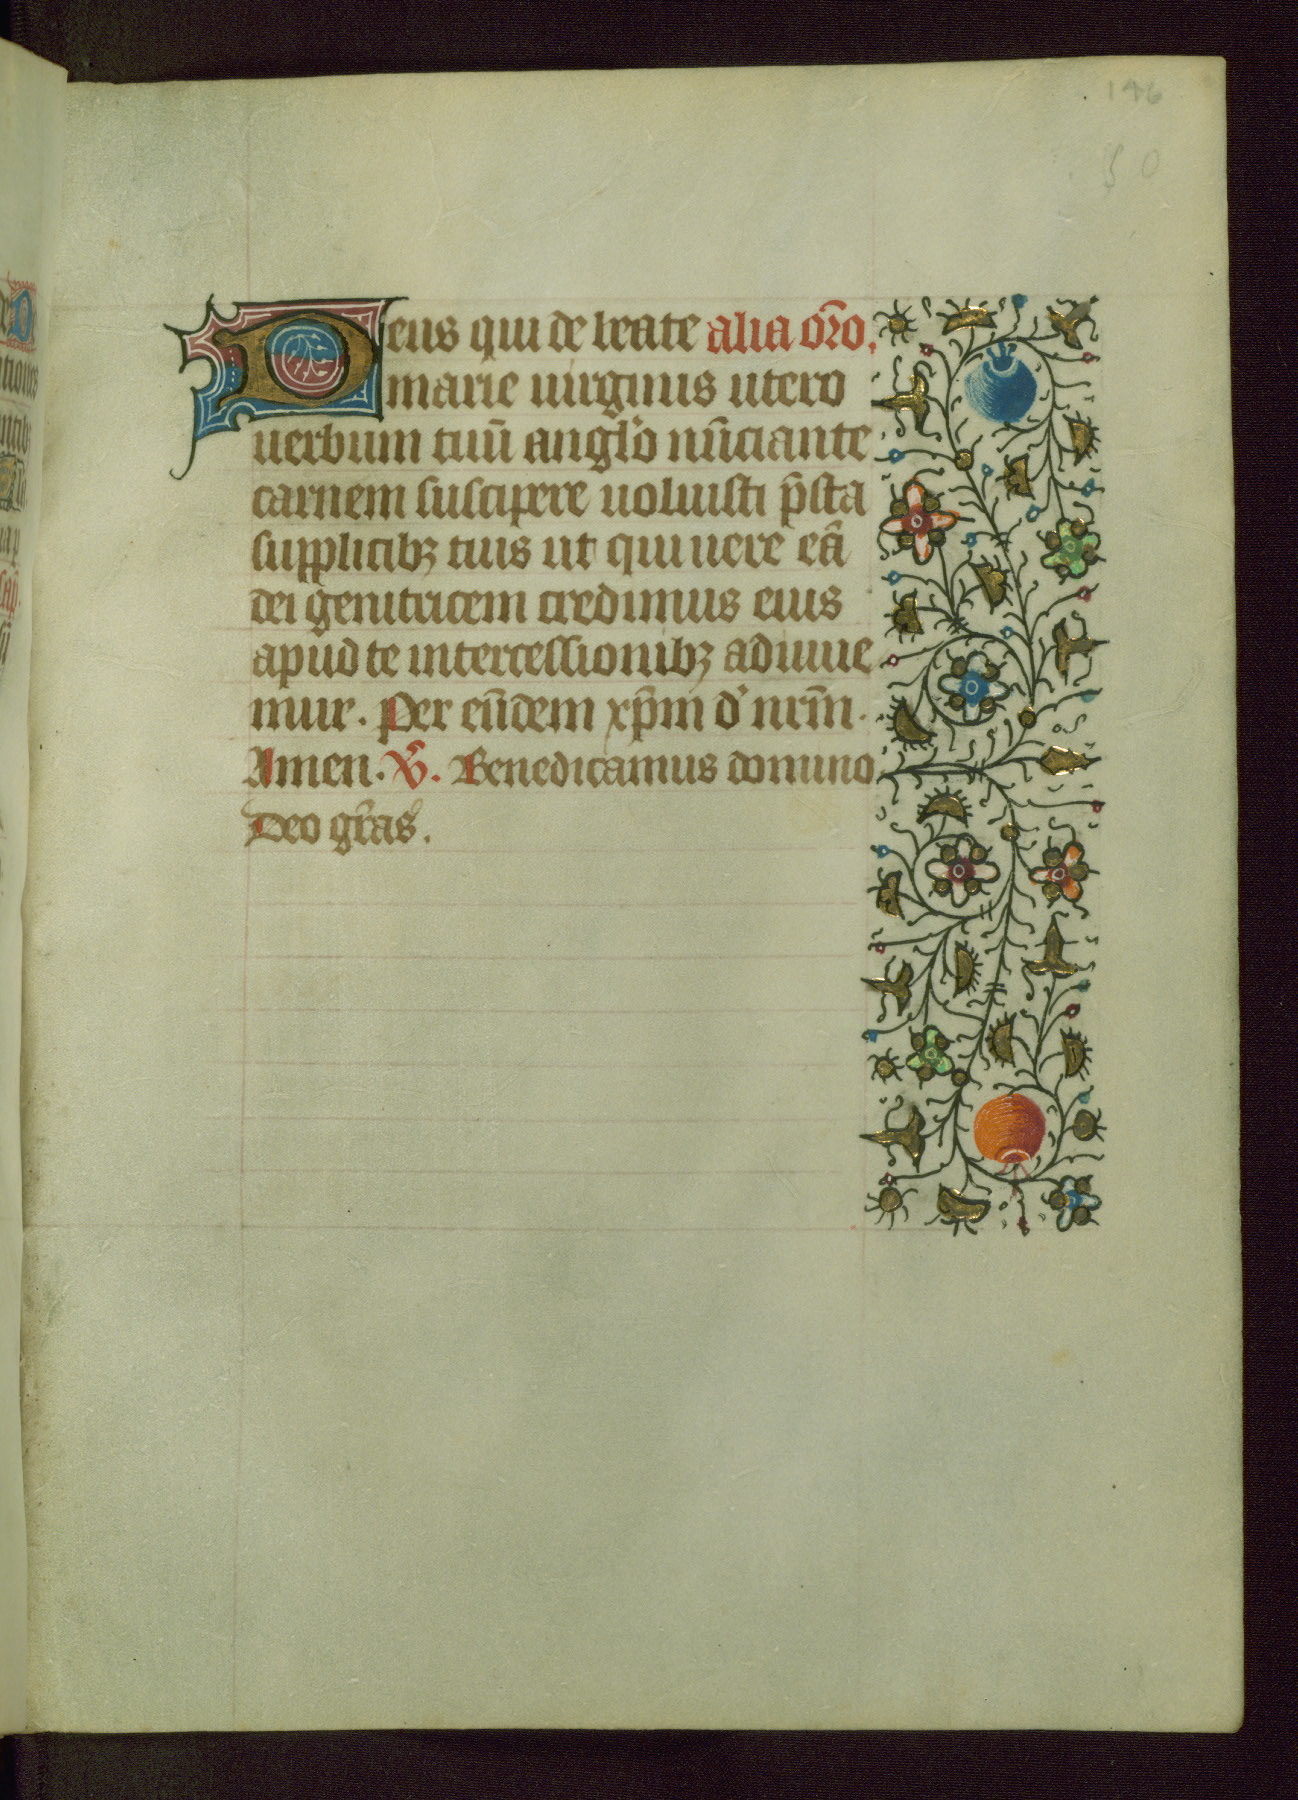 146
50
Deus qui de beate alia or̄o.
marie uirginis utero
uerbum tuū angl̄o nūciante
carnem suscipere uoluisti p̄sta
supplicibꝫ tuis ut qui uere eā
dei genitricem credimus eius
apud te intercessionibꝫ adiuue
mur. Per eūdem xp̄m d' nr̄m.
Amen. V̄. Benedicamus domino
Deo gr̄as.